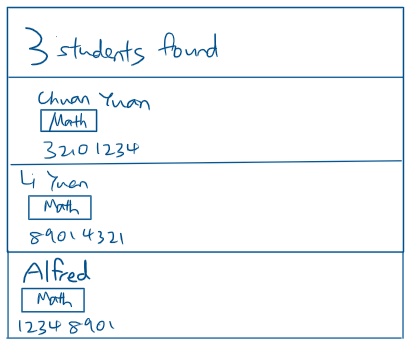 3 students found
Chuan Yuan
Math
32101234
Li Yuan
Math
89014321
Alfred
Math
12348901